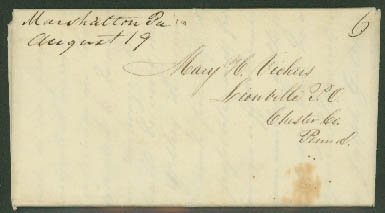 Marshallton Pa
August 19
6
Mary H. Vickers
Lionville P.O.
Chester Co.
Penna.